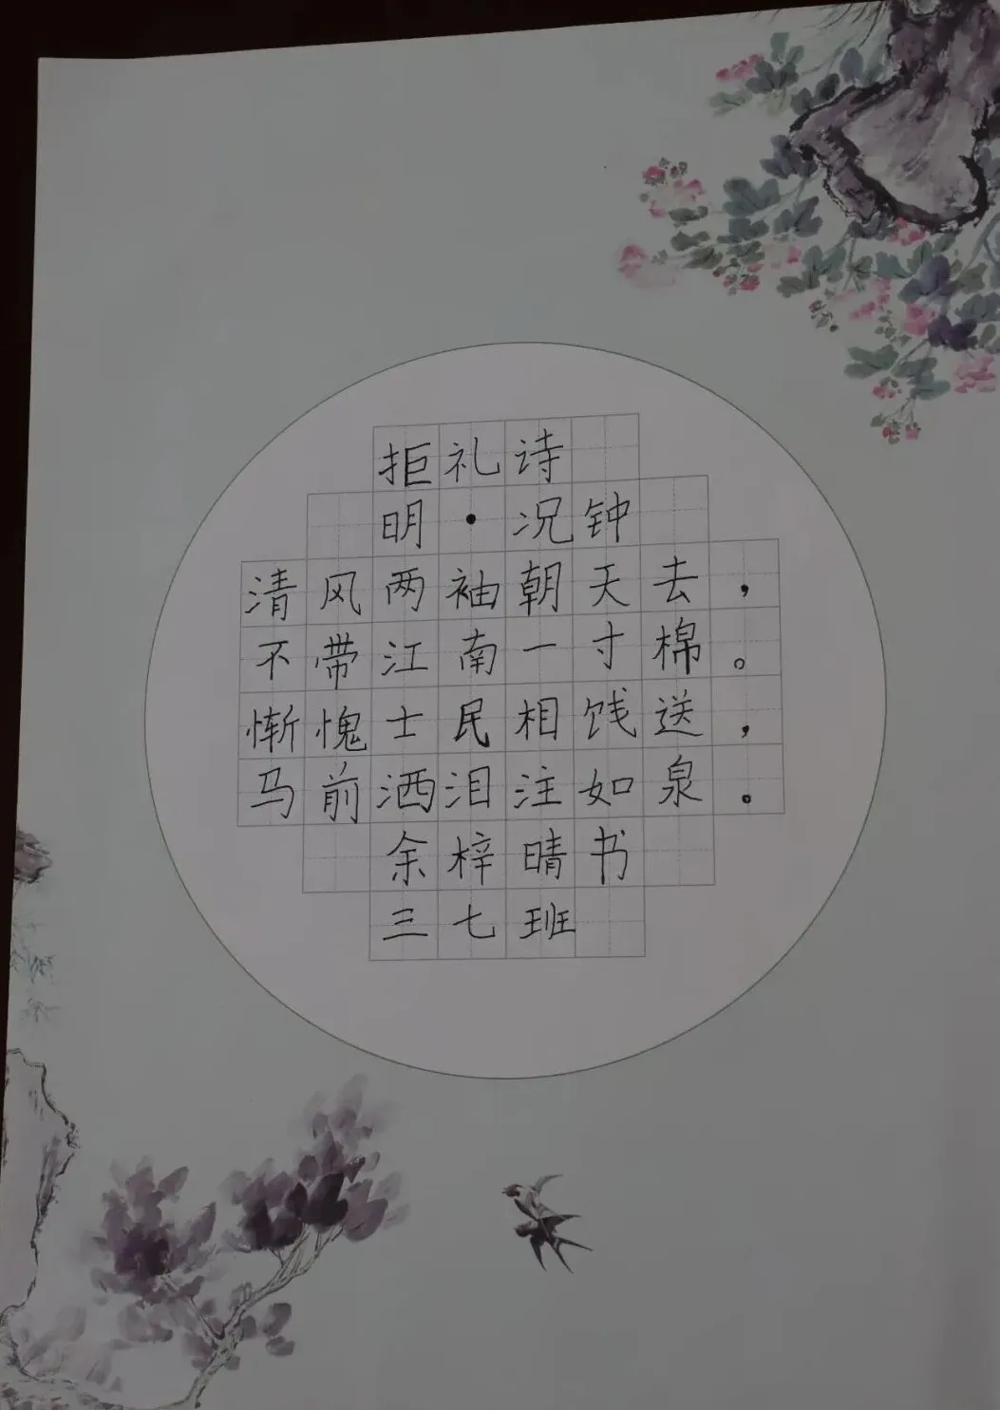 拒礼诗
明·况钟
清风两袖朝天去，
不带江南一寸棉。
惭愧士民相饯送，
马前洒泪注如泉。
余梓晴书
三七班